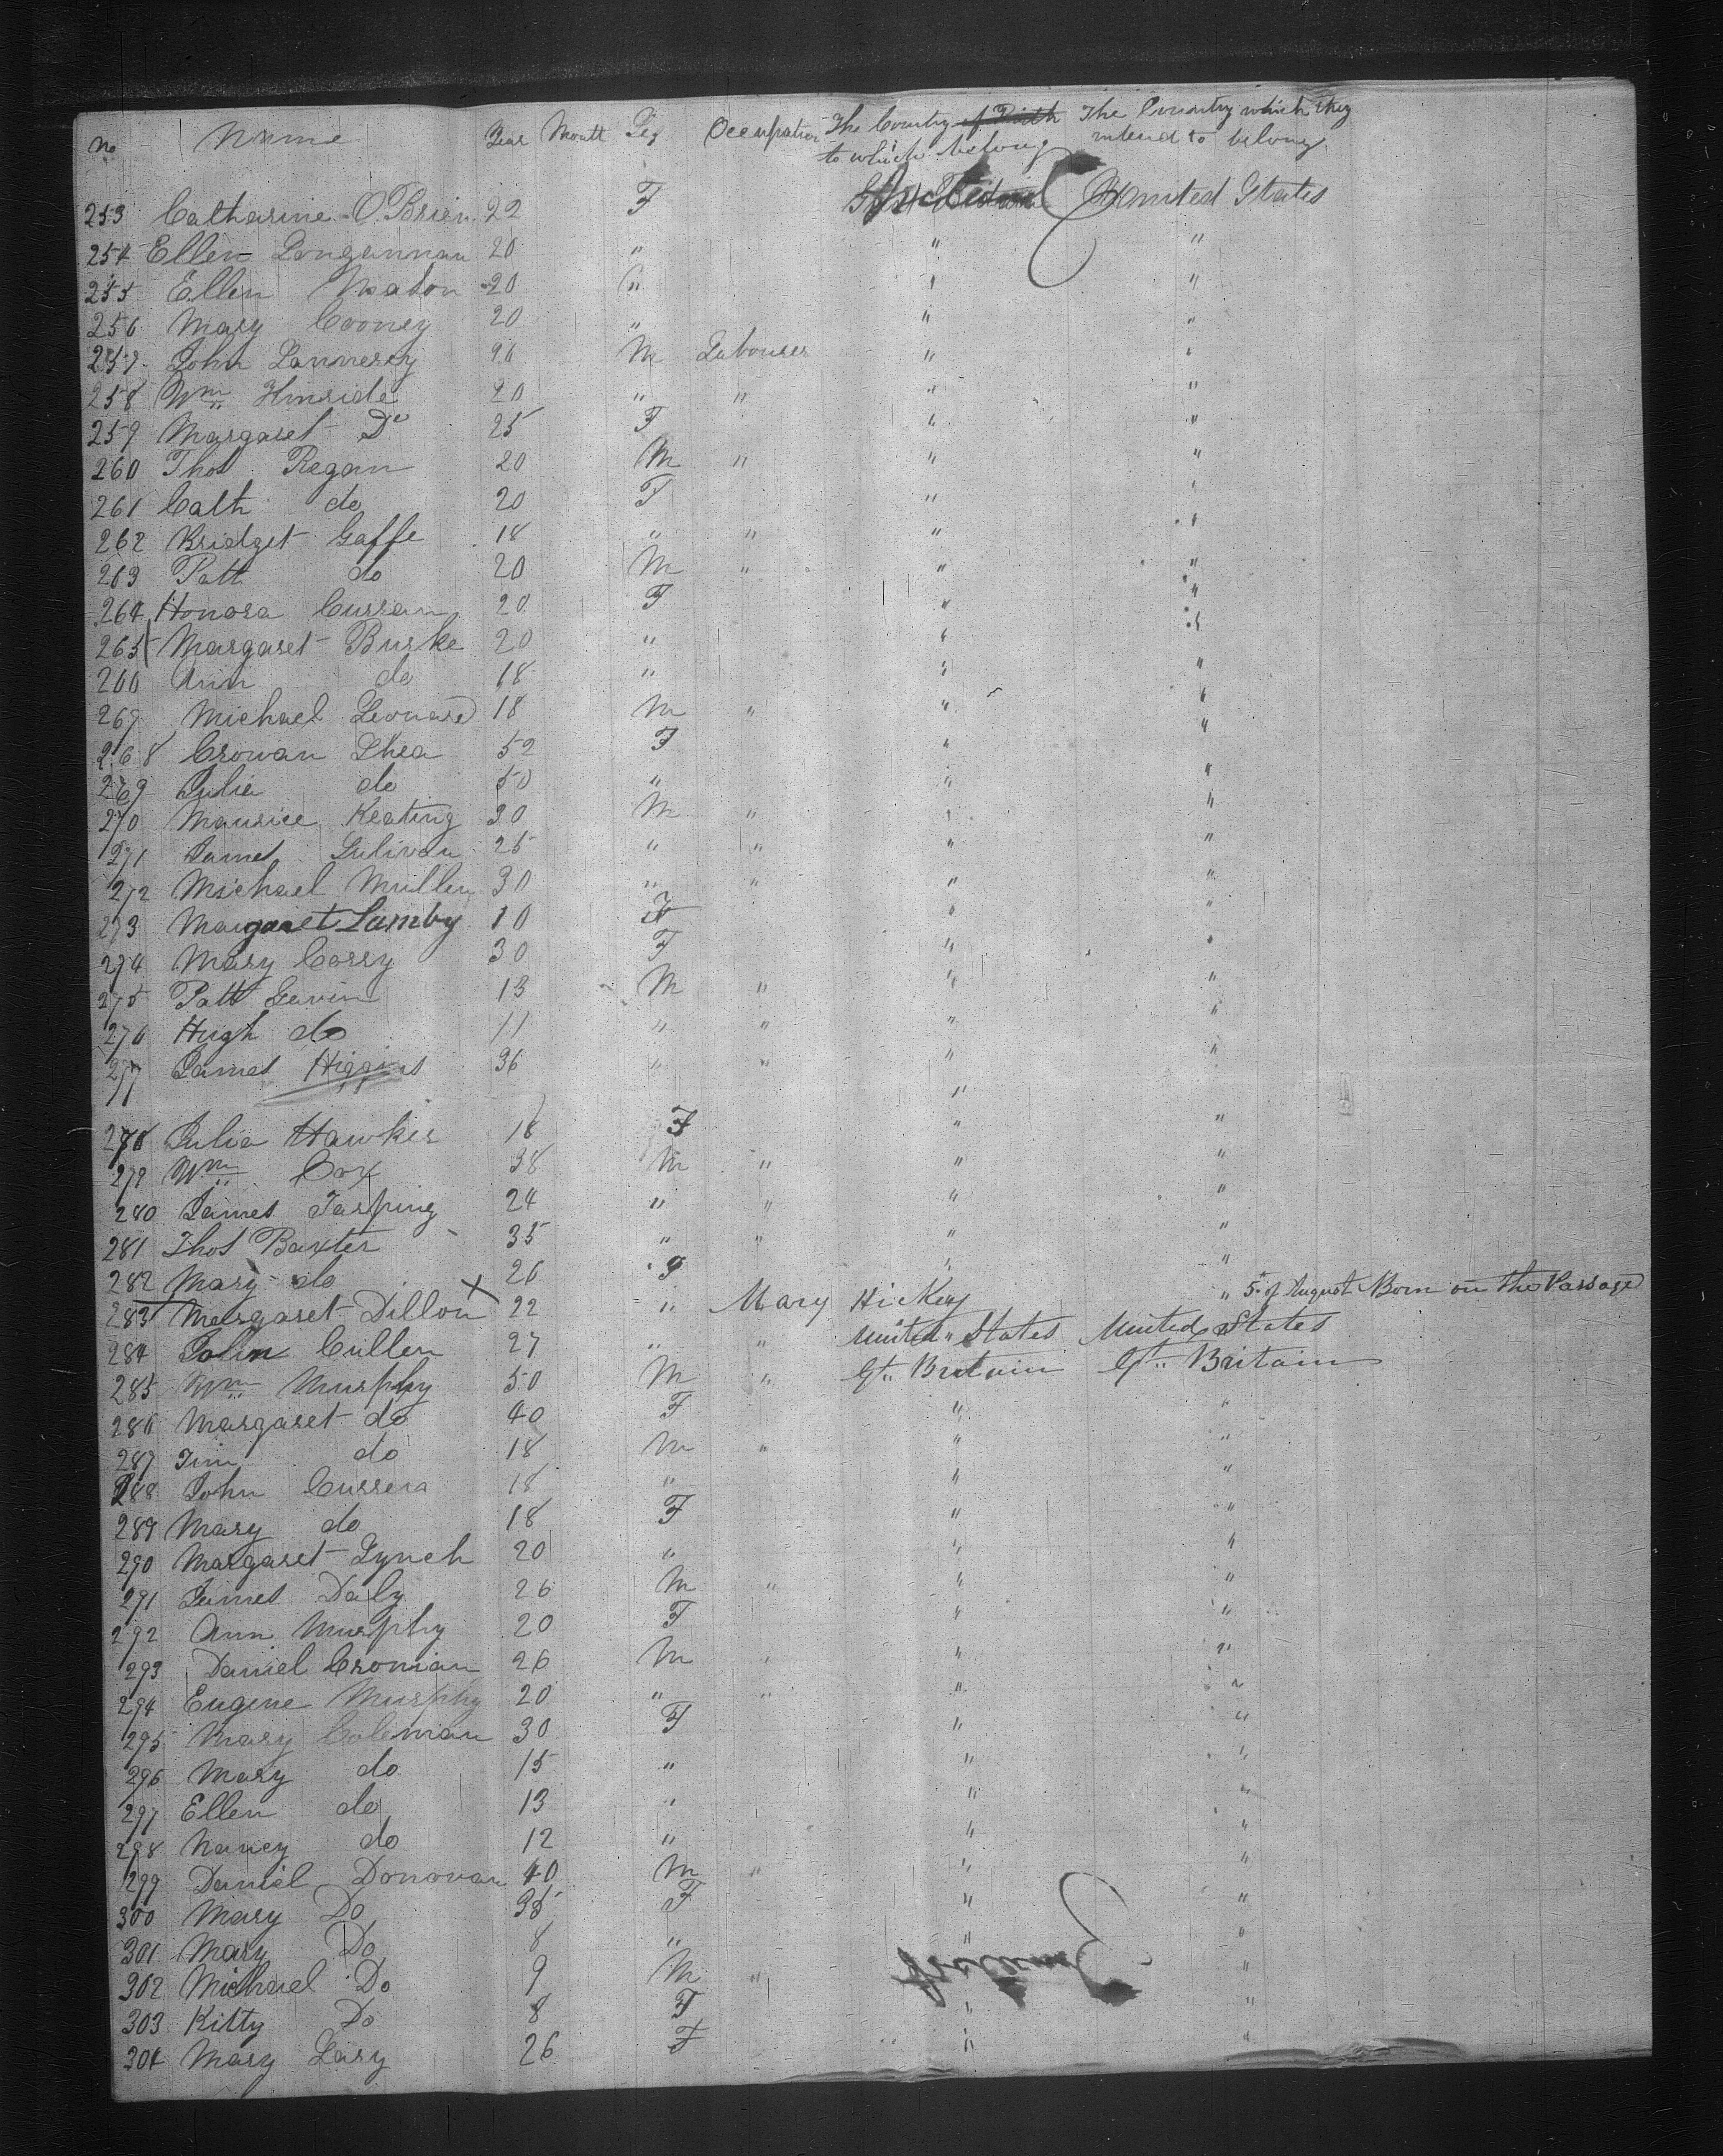 No Name Year Month Sex Occupation The Country of Birth to which belong The Country which they intend to belong
253 Catharine O.Brien 22 F Ireland United States
254 Ellen Longannan 20 " " "
255 Ellen Maton 20 " " "
256 Mary Cooney 20 " " "
257 John Lannesey 26 M Labourer " "
258 Wm Kinside 20 " " " "
259 Margaret Do 25 F " "
260 Thos Regan 20 M " " "
261 Cath do 20 F " "
262 Bridget Gaffe 18 " " " "
263 Patt do 20 M " " "
264 Honora Curran 20 F " "
265 Margaret Burke 20 " " "
266 Ann do 18 " " "
267 Michael Leonard 18 M " " "
268 Crowan Shea 52 F " "
269 Julia do 50 " " "
270 Maurice Keating 30 M " " "
271 James Sulivan 25 " " " "
272 Michael Mullen 30 " " " "
273 Margaret Lamby 10 F " "
274 Mary Corry 30 F " "
275 Patt Gavin 13 M " " "
276 Hugh do 11 " " " "
277 James Higgins 36 " " " "
"
278 Julia Hawkes 18 F " "
279 Wm Cox 38 M " " "
280 James Tarping 24 " " " "
281 Thos Baxter 35 " " " "
282 Mary do 26 F " "
283 Margaret Dillon X 22 " Mary Hickey " 5th of August Born on the Passage
284 John Cullen 27 " " United States United States
285 Wm Murphy 50 M " Gt. Britain Gt. Britain
286 Margaret do 40 F " "
287 Jim do 18 M " " "
288 John Currera 18 " " "
289 Mary do 18 F " "
290 Margaret Lynch 20 " " "
291 James Daly 26 M " " "
292 Ann Murphy 20 F " "
293 Daniel Cronian 26 M " " "
294 Eugene Murphy 20 " " " "
295 Mary Coleman 30 F " "
296 Mary do 15 " " "
297 Ellen do 13 " " "
298 Nancy do 12 " " "
299 Daniel Donovan 40 M " " "
300 Mary Do 35 F " "
301 Mary Do 8 " " "
302 Michael Do 9 M " Ireland "
303 Kitty Do 8 F " "
304 Mary Lary 26 F " "